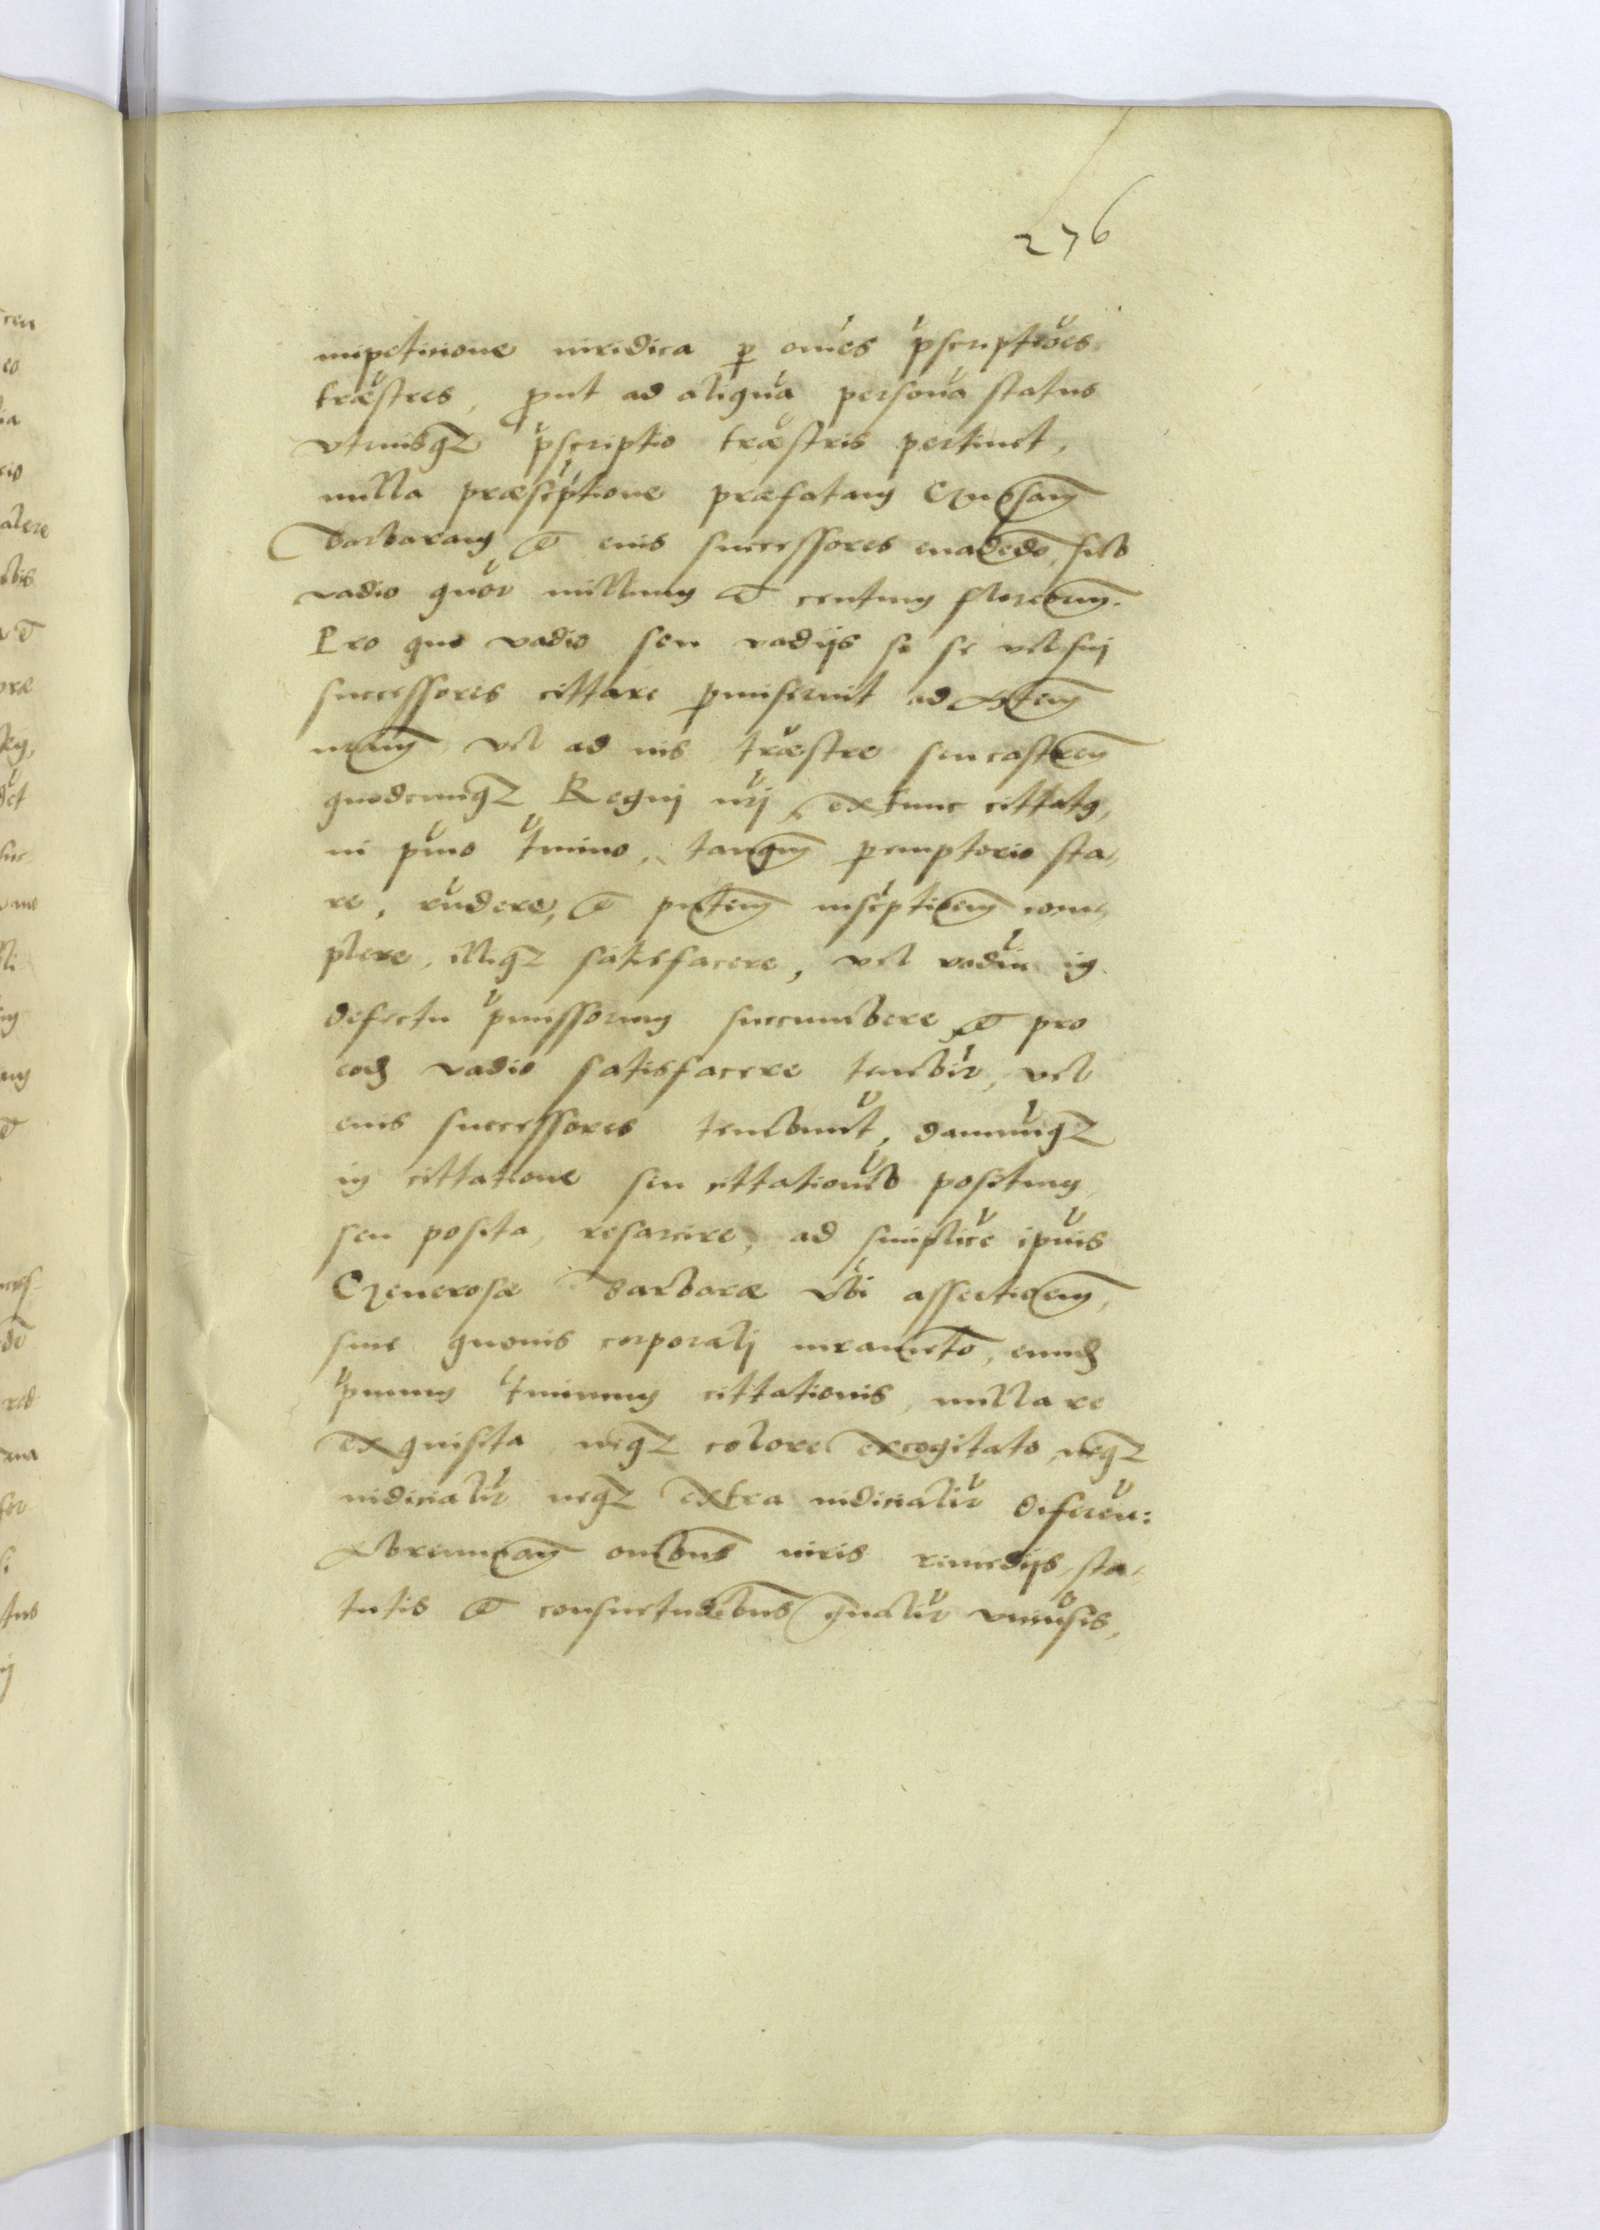 276
impetitione iuridica p omes pscriptoes
træstres, prout ad aliqua persona status
vtriusqz pscriptio træstris pertinet,
nulla præscptione præfatam Gnosam
Barbaram et eius successores euadedo, sub
vadio quor millium et centum floreorum.
Pro quo vadio seu vadijs se se vel suj
successores cittare pmiserunt ad
nram vel ad ius træstre seu castren
quodcunqz Regni nrj, ex tunc cittatus,
in pmo tmino, tanqm peremptorio sta,
re, rndere, et pntem inscptioem com,
plere, illiqz satisfacere, vel vadiu in
defectu pmissorum succumbere, et pro
eod vadio satisfacere tenebir, vel
eius successores tenebunt, damnuqz
in cittatione seu cittatioib positum
seu posita, resarcire, ad simplice ipius
Generosæ Barbaræ vbi assertioem,
sine quouis corporalj iurameto, eund
pmum tminum cittationis, nulla re
exquisita neqz colore excogitato, neqz
iudicialir neqz extra iudicialir diferen:
omibus iuris remedijs sta,
tutis et consuetudibus gnalir vniusis,